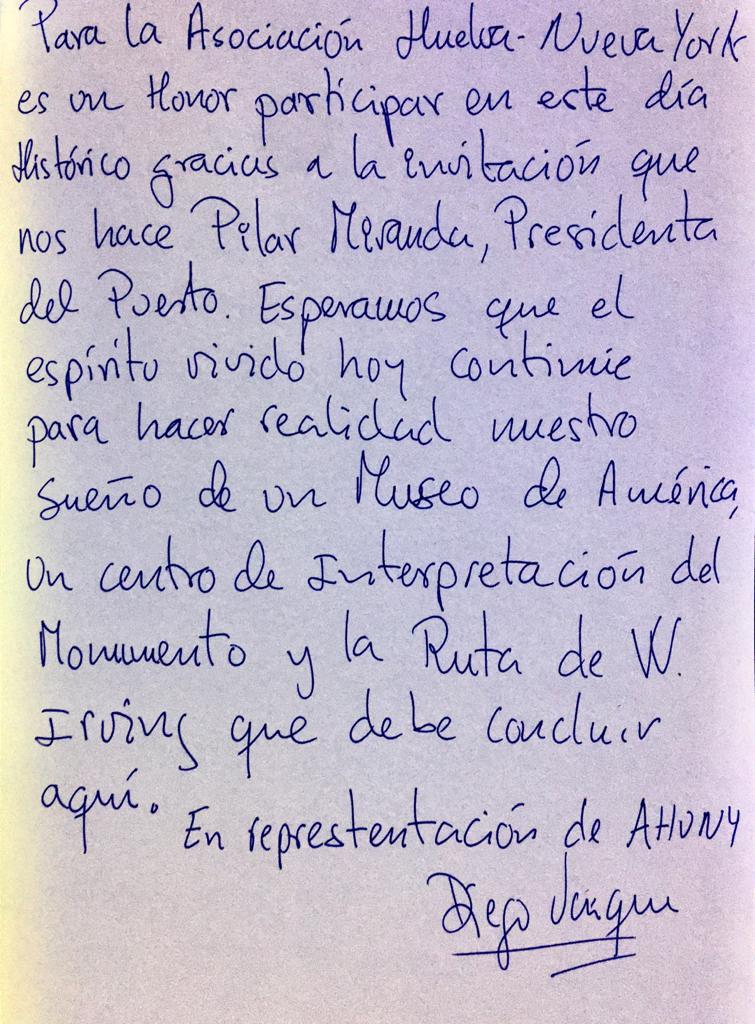 Para la Asociación Huelva-Nueva York
es un Honor participar en este día
Histórico gracias a la invitación que
nos hace Pilar Miranda, Presidenta
del Puerto. Esperamos que el
espíritu vivido hoy continúe
para hacer realidad nuestro
sueño de un Museo de América,
un centro de Interpretación del
Monumento y la Ruta de W.
Irving que debe concluir
aquí.
En represtentación de AHUNY
Diego